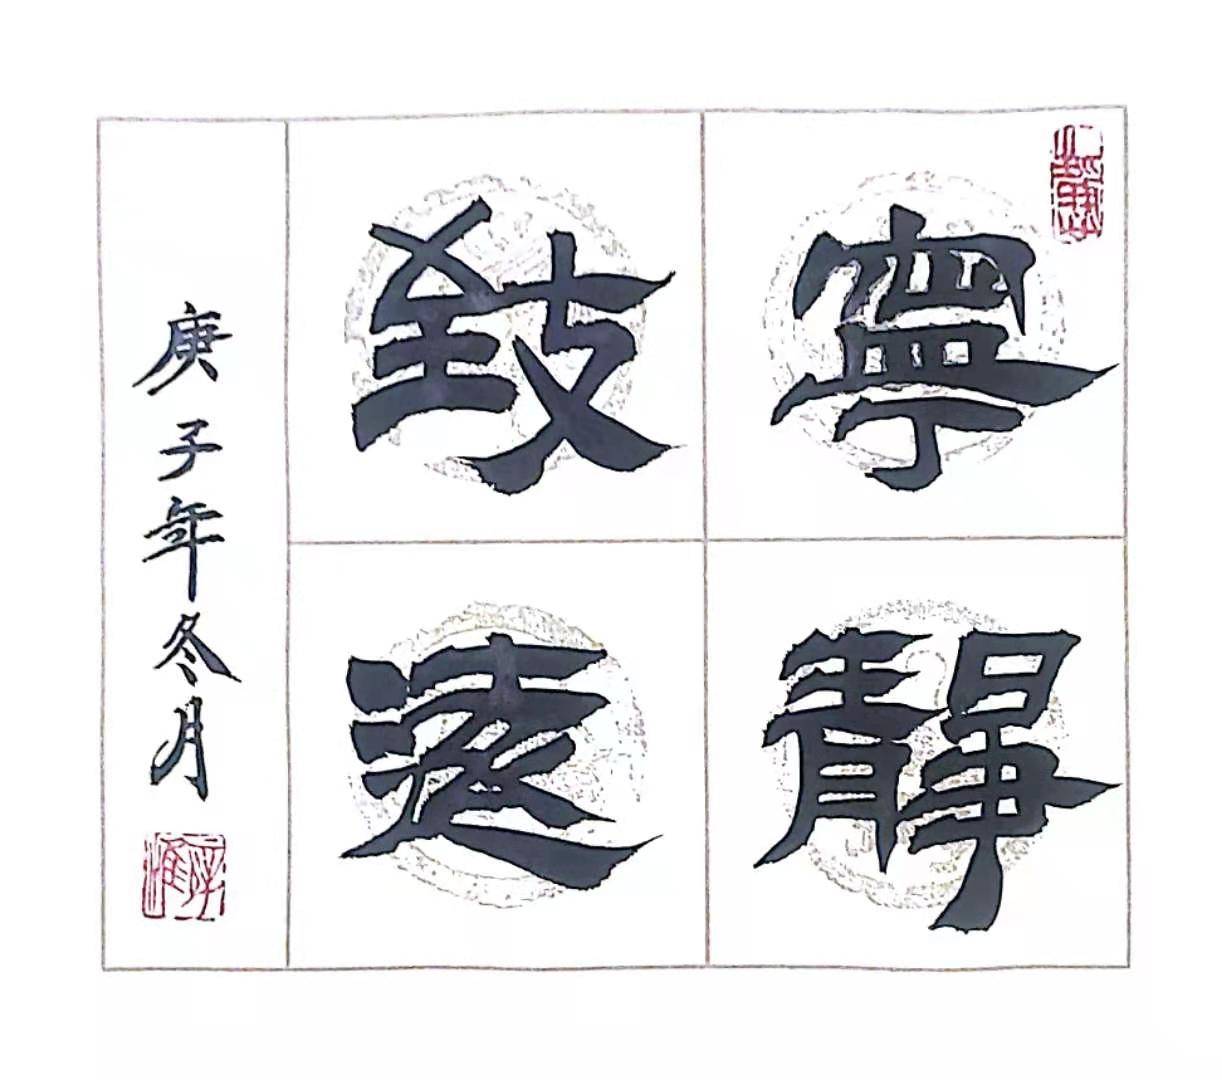 寧靜
致遠
庚子年冬月